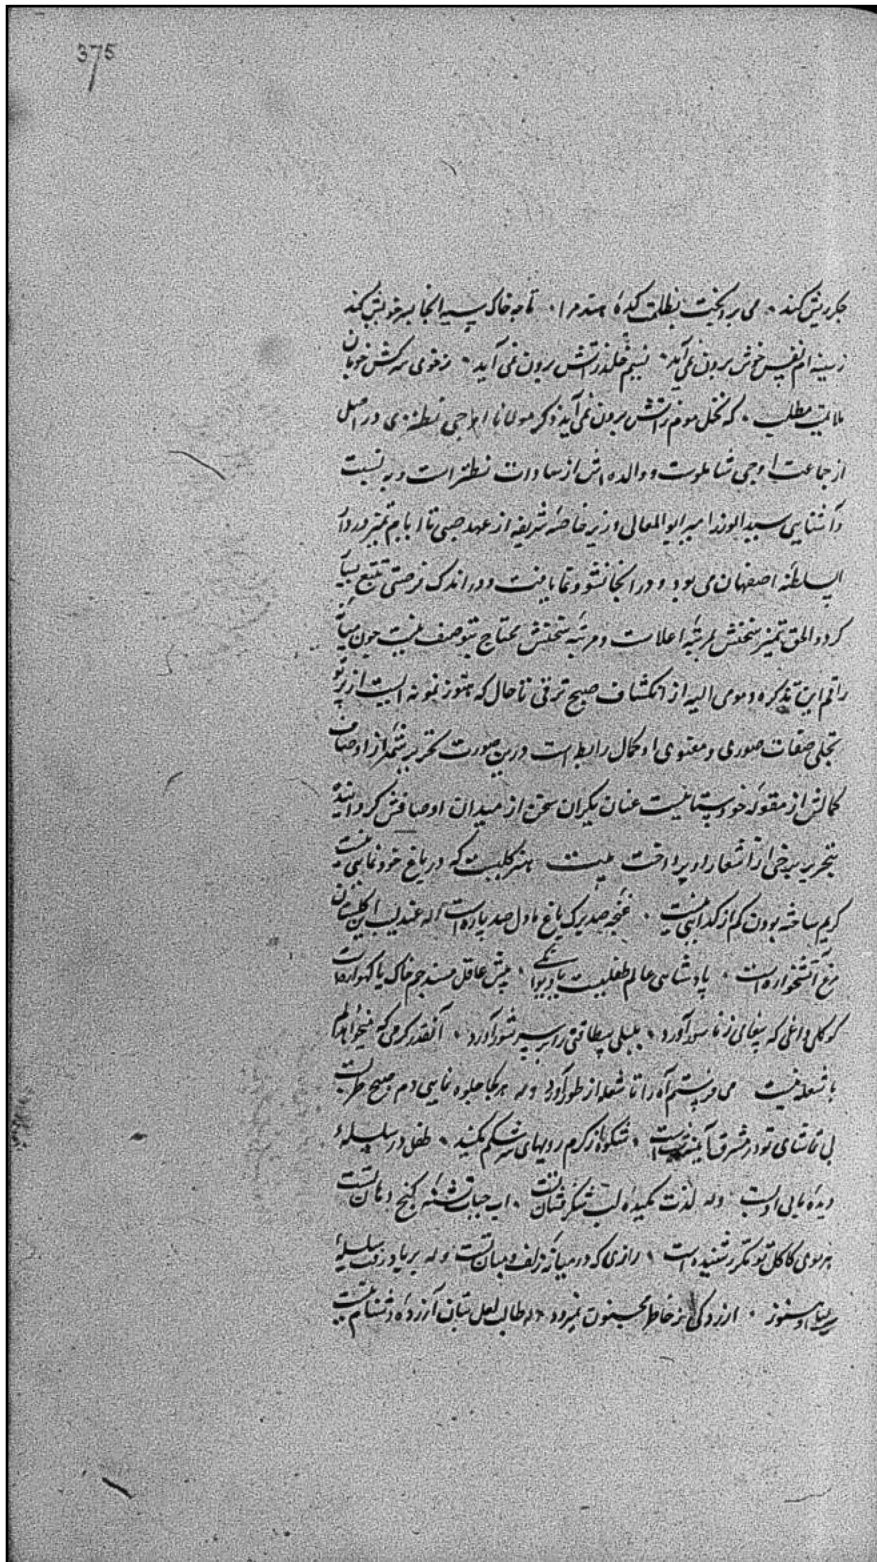 375
جکر ریش کند می برد بخت بظلمت کدهٔ هند مرا تا چه خاک سیه انجا بسر خویش کند
ز سینه ام نفس خوش برون نمی آید نسیم خلد ز آتش برون نمی آید ز خوی سرکش خوبان
ملایمت مطلب که نخل موم ز آتش برون نمی آید ذکر مولانا اوجی نطنزی در اصل
از جماعت اوجی شاملوست و والده اش از سادات نطنز است و به نسبت
و آشنایی سید الوزرا میر ابو المعالی وزیر خاصه شریفه از عهد صبی تا ایام تمیز در دار
السلطنه اصفهان می بود و در انجا نشو و نما یافت و در اندک فرصتی تتبع بسیار
کرد و الحق تمیز سخنش بمرتبهٔ اعلاست و مرتبه سخنش محتاج بتوصیف نیست چون میانهٔ
راقم این تذکره و مومی الیه از انکشاف صبح ترقی تا حال که هنوز نمونه ایست از پرتو
تجلی صفات صوری و معنوی او کمال رابطه است درین صورت تحریر شمهٔ از اوصاف
کمالش از مقولهٔ خودستاییست عنان یکران سخن از میدان اوصافش گردانیده
بتحریر برخی از اشعار او پرداخت بیت هنر گلیست که در باغ خود نمایی نیست
کریم ساخته بودن کم از گدایی نیست غنچه صد برک باغ ما دل صد پاره است عندلیب این گلستان
مرغ آتشخواره است پادشاهی عالم طفلیست یا دیوانگی پیش عاقل مسند جم خاک یا گهواره است
کو کل داغی که بیغمای ز ناسور آورد بلبلی بیطاقتی را بر سر شور آورد آنقدر گرمی که میخواهد دلم
با شعله نیست می فرستم آه را تا شعله از طور آورد وله هر کجا جلوه نمایی دم صبح طربست
بی تماشای تو در مشرق آیینه شکوها از کرم رویهای سرشکم مکنید طفل در سلسلهٔ
دیده مایی ادبست وله لذت مکیده لب شکر فشان تست اب حیات تشنه کنج دهان تست
هر موی کاکل تو مکرر شنیده است رازی که در میانه زلف و میان تست وله بر باد رفت سلسلهٔ
هنوز ازردگی ز خاطر مجنون نمیرود وله طالب لعل بتان آزردهٔ دشنام نیست